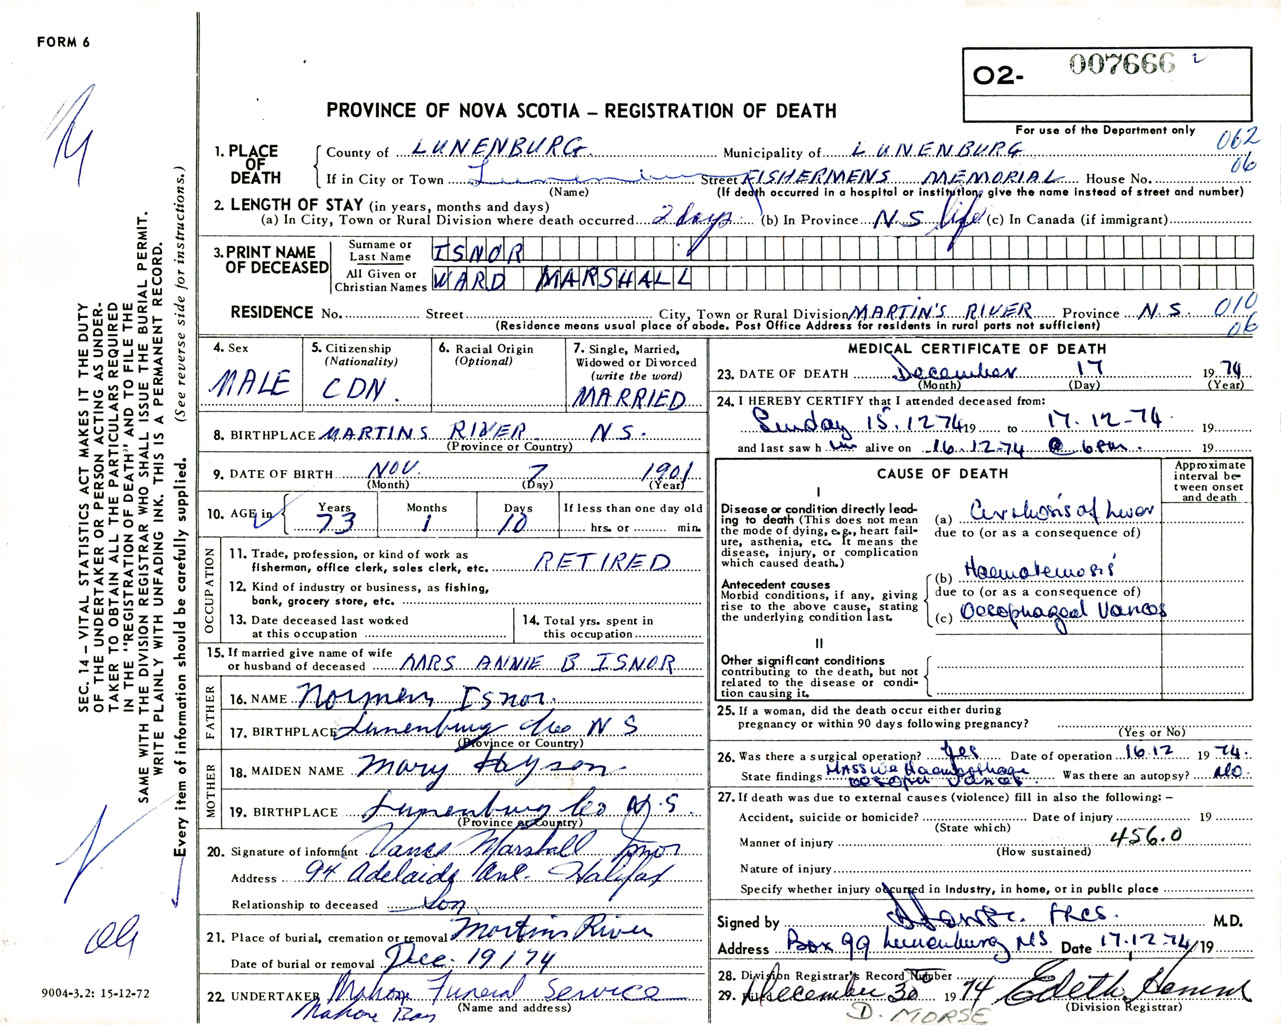 FORM 6
O2- 007666 2
PROVINCE OF NOVA SCOTIA – REGISTRATION OF DEATH
For use of the Department only
062
06
1. PLACE OF DEATH
County of LUNENBURG Municipality of LUNENBURG
If in City or Town Lunenburg Street FISHERMENS MEMORIAL House No.
(Name) (If death occurred in a hospital or institution, give the name instead of street and number)
2. LENGTH OF STAY (in years, months and days)
(a) In City, Town or Rural Division where death occurred 2 days (b) In Province N.S. life (c) In Canada (if immigrant)
3. PRINT NAME OF DECEASED
Surname or Last Name ISNOR
All Given or Christian Names WARD MARSHALL
RESIDENCE No. Street City, Town or Rural Division MARTIN'S RIVER Province N.S. 010
06
(Residence means usual place of abode. Post Office Address for residents in rural parts not sufficient)
4. Sex
MALE
5. Citizenship
(Nationality)
CDN.
6. Racial Origin
(Optional)
7. Single, Married,
Widowed or Divorced
(write the word)
MARRIED
8. BIRTHPLACE MARTINS RIVER N.S.
(Province or Country)
9. DATE OF BIRTH NOV. 7 1901
(Month) (Day) (Year)
10. AGE in Years Months Days If less than one day old
73 1 10 hrs. or min.
OCCUPATION
11. Trade, profession, or kind of work as
fisherman, office clerk, sales clerk, etc. RETIRED
12. Kind of industry or business, as fishing,
bank, grocery store, etc.
13. Date deceased last worked
at this occupation
14. Total yrs. spent in
this occupation
15. If married give name of wife
or husband of deceased MRS ANNIE B ISNOR
FATHER
16. NAME Norman Isnor.
17. BIRTHPLACE Lunenburg Co N S
(Province or Country)
MOTHER
18. MAIDEN NAME Mary Hyson
19. BIRTHPLACE Lunenburg Co N.S.
(Province or Country)
20. Signature of informant Vance Marshall Isnor
Address 94 Adelaide Ave. Halifax
Relationship to deceased Son
21. Place of burial, cremation or removal Martins River
Date of burial or removal Dec. 19/74
22. UNDERTAKER Mahone Funeral Service
(Name and address)
Mahone Bay
MEDICAL CERTIFICATE OF DEATH
23. DATE OF DEATH December 17 1974
(Month) (Day) (Year)
24. I HEREBY CERTIFY that I attended deceased from:
Sunday 15.12.74 19 to 17.12-74 19
and last saw h im alive on 16.12-74 @ 6pm. 19
CAUSE OF DEATH
Approximate interval between onset and death
I
Disease or condition directly leading to death (This does not mean the mode of dying, e.g., heart failure, asthenia, etc. It means the disease, injury, or complication which caused death.)
(a) Cirrhosis of Liver
due to (or as a consequence of)
Antecedent causes
Morbid conditions, if any, giving rise to the above cause, stating the underlying condition last.
(b) Haematemesis
due to (or as a consequence of)
(c) Oesophageal Varices
II
Other significant conditions contributing to the death, but not related to the disease or condition causing it.
25. If a woman, did the death occur either during
pregnancy or within 90 days following pregnancy?
(Yes or No)
26. Was there a surgical operation? Yes Date of operation 16.12 1974.
State findings Massive Haemorrhage Was there an autopsy? No.
27. If death was due to external causes (violence) fill in also the following: –
Accident, suicide or homicide? Date of injury 19
(State which)
Manner of injury 456.0
(How sustained)
Nature of injury
Specify whether injury occurred in Industry, in home, or in public place
Signed by FRCS. M.D.
Address Box 99 Lunenburg NS Date 17.12.74/19
28. Division Registrar's Record Number
29. December 30 1974 Edeth
(Division Registrar)
D. MORSE
SEC. 14 – VITAL STATISTICS ACT MAKES IT THE DUTY
OF THE UNDERTAKER OR PERSON ACTING AS UNDER-
TAKER TO OBTAIN ALL THE PARTICULARS REQUIRED
IN THE "REGISTRATION OF DEATH" AND TO FILE THE
SAME WITH THE DIVISION REGISTRAR WHO SHALL ISSUE THE BURIAL PERMIT.
WRITE PLAINLY WITH UNFADING INK. THIS IS A PERMANENT RECORD.
Every item of information should be carefully supplied. (See reverse side for instructions.)
9004-3.2: 15-12-72